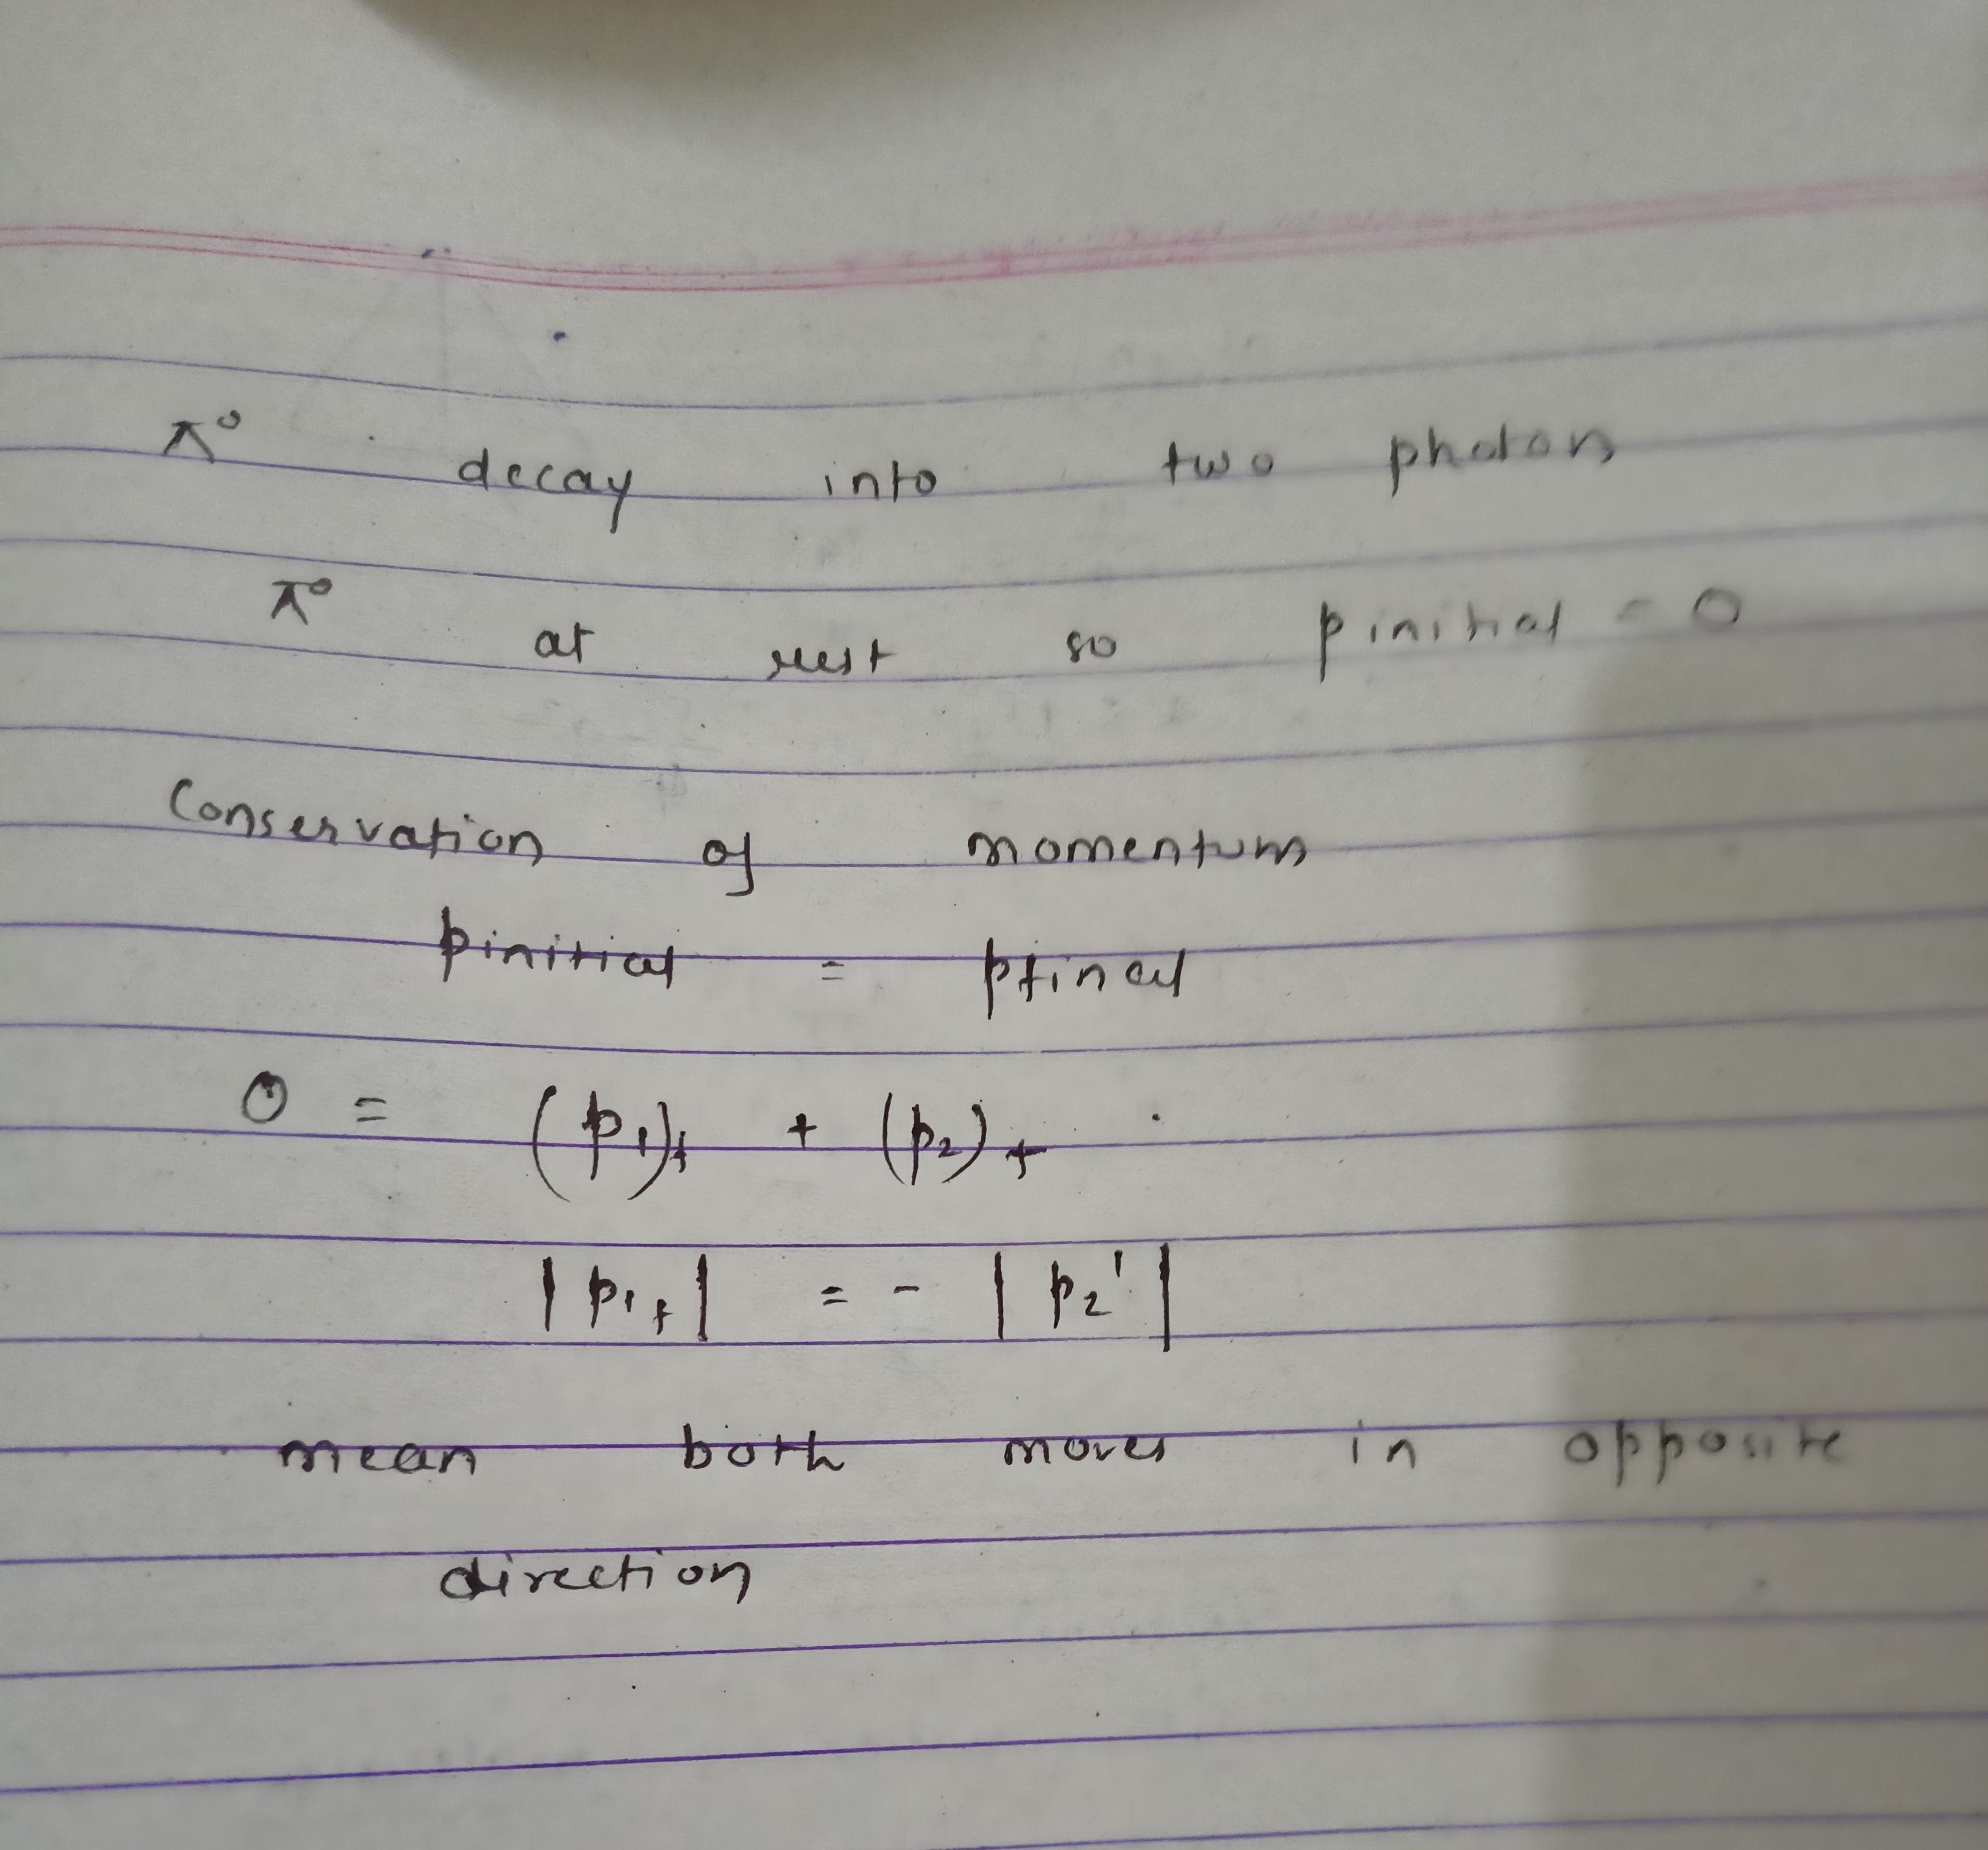 π° decay into two photon
π° at rest so p initial = 0
Conservation of momentum
pinitial = pfinal
0 = (p₁)f + (p₂)f
|p₁f| = - |p₂'|
mean both moves in opposite
direction